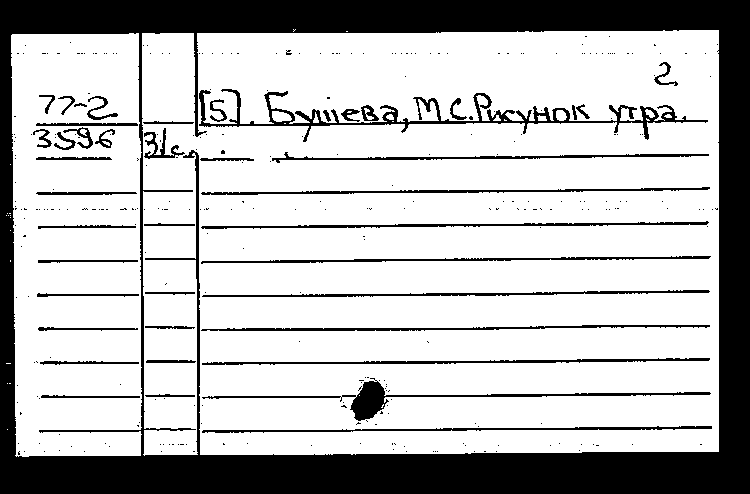 2
77-2 [5]. Бушева, М.С. Рисунок утра.
3596 31с.